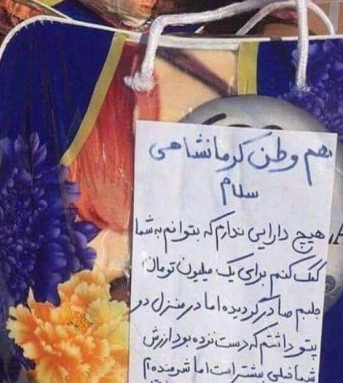 هم وطن کرمانشاهی
سلام
هیچ دارایی ندارم که بتوانم به شما
کمک کنم برای یک میلیون تومان
جلبم صادر گردیده اما در منزل دو
پتو داشتم که دست نزده بود ارزش
شما خیلی بیشتر است اما شرمنده ام